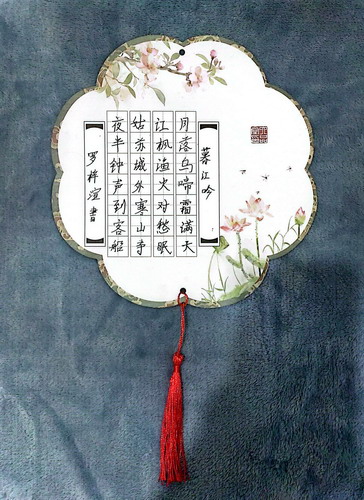 暮江吟
月落乌啼霜满天
江枫渔火对愁眠
姑苏城外寒山寺
夜半钟声到客船
罗梓渲書